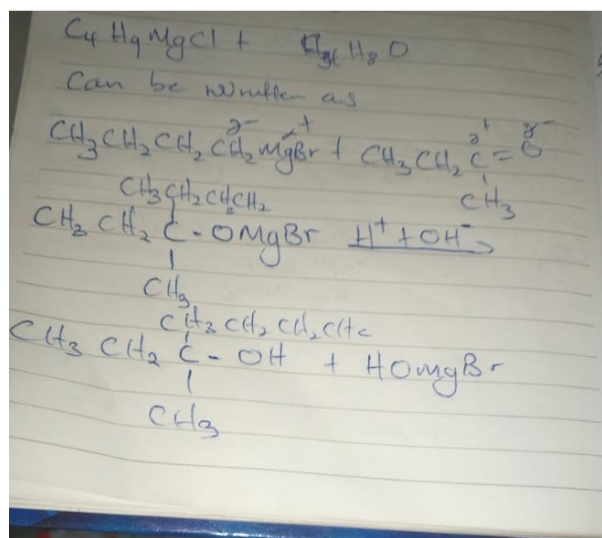 C4 H9 MgCl + H8 O
Can be written as
CH3 CH2 CH2 CH2 MgBr + CH3 CH2 C = O
CH3
CH3 CH2 CH2 CH2
CH3 CH2 C - OMgBr H+ + OH-
CH3
CH3 CH2 CH2 CH2
CH3 CH2 C - OH + HOMgBr
CH3